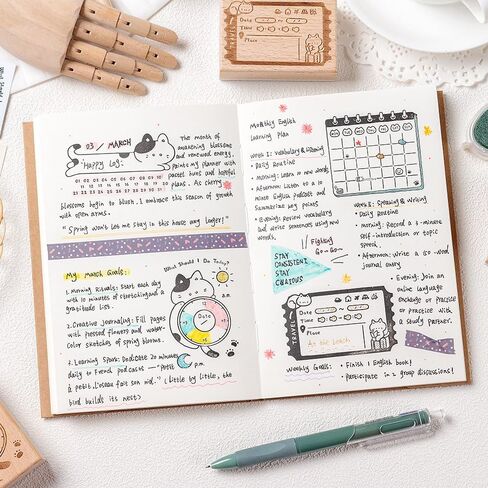 03 / MARCH
Happy Log:
01 02 03 04 05 06 07 08 09 10
11 12 13 14 15 16 17 18 19 20
21 22 23 24 25 26 27 28 29 30 31
The month of
awakening blossoms
and renewed energy,
paints my planner with
pastel hues and hopeful
plans. As cherry
blossoms begin to blush, I embrace the season of growth
with open arms.
"Spring won't let me stay in this house any longer!"
My March Goals:
What Should I Do Today?
1. Morning Rituals: Start each day
with 10 minutes of stretching and a
gratitude list.
2. Creative journaling: Fill pages
with pressed flowers and water-
color sketches of spring blooms.
3. Learning Spark: Dedicate 20 minutes
daily to French podcasts — "Petit
à petit, l'oiseau fait son nid." (Little by little, the
bird builds its nest)
a.m.
Date
p.m.
Monthly English
Learning Plan
Week 1: Vocabulary & Listening
Daily Routine
Morning: Learn 10 new words
Afternoon: Listen to a 10
minute English podcast and
summarize key points
Evening: Review vocabulary
and write sentences using new
words.
Fighting
Go~Go~
STAY
CONSISTENT
STAY
CURIOUS
Week 2: Speaking & Writing
Daily Routine
Morning: Record a 3-minute
self-introduction or topic
speech
Afternoon: Write a 150-word
journal entry
Evening: Join an
online language
exchange or practice
or practice with
a Study Partner.
TRAVEL
Date
Time
Place
At the Beach
Weekly Goals:
Finish 1 English book!
Participate in 2 group discussions!
Date
Time
Place